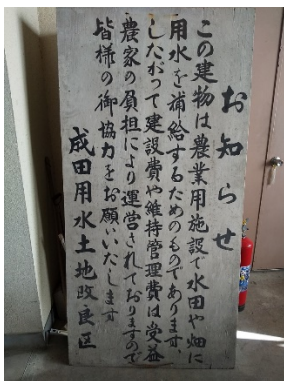 お知らせ
この建物は農業用施設で水田や畑に
用水を補給するためのものであります、
したがって建設費や維持管理費は受益
農家の負担により運営されておりますので
皆様の御協力をお願いいたします
成田用水土地改良区